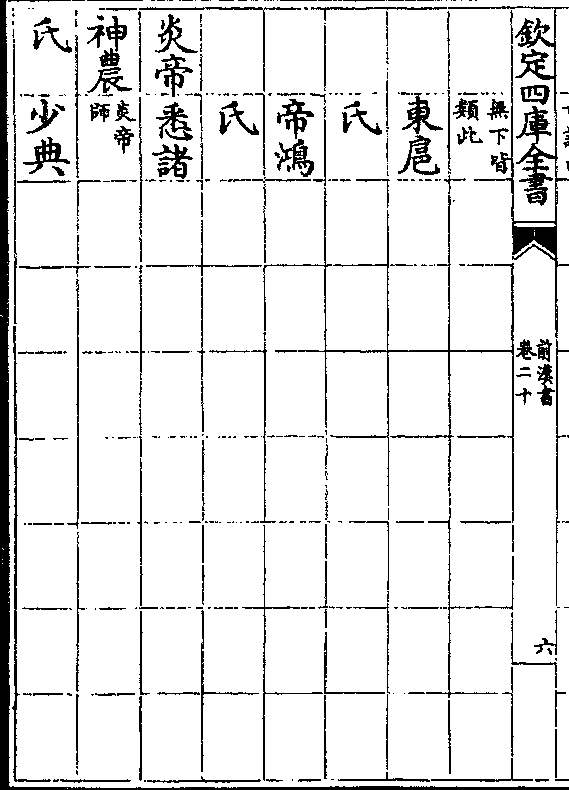 欽定四庫全書
前漢書
卷二十
六
無下皆
類此
東扈
氏
帝鴻
氏
炎帝 悉諸
神農 炎帝
師
氏 少典